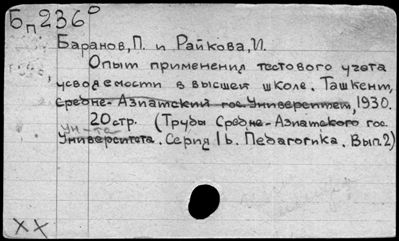 Бп236°
Баранов, П. и Райкова, И.
Опыт применения тестового учета
усвояемости в высшей школе. Ташкент,
Средне-Азиатский гос. Университет, 1930.
20 стр. (Труды Средне-Азиатского гос.
ун-та
Университета. Серия Ib. Педагогика. Вып. 2)
XX